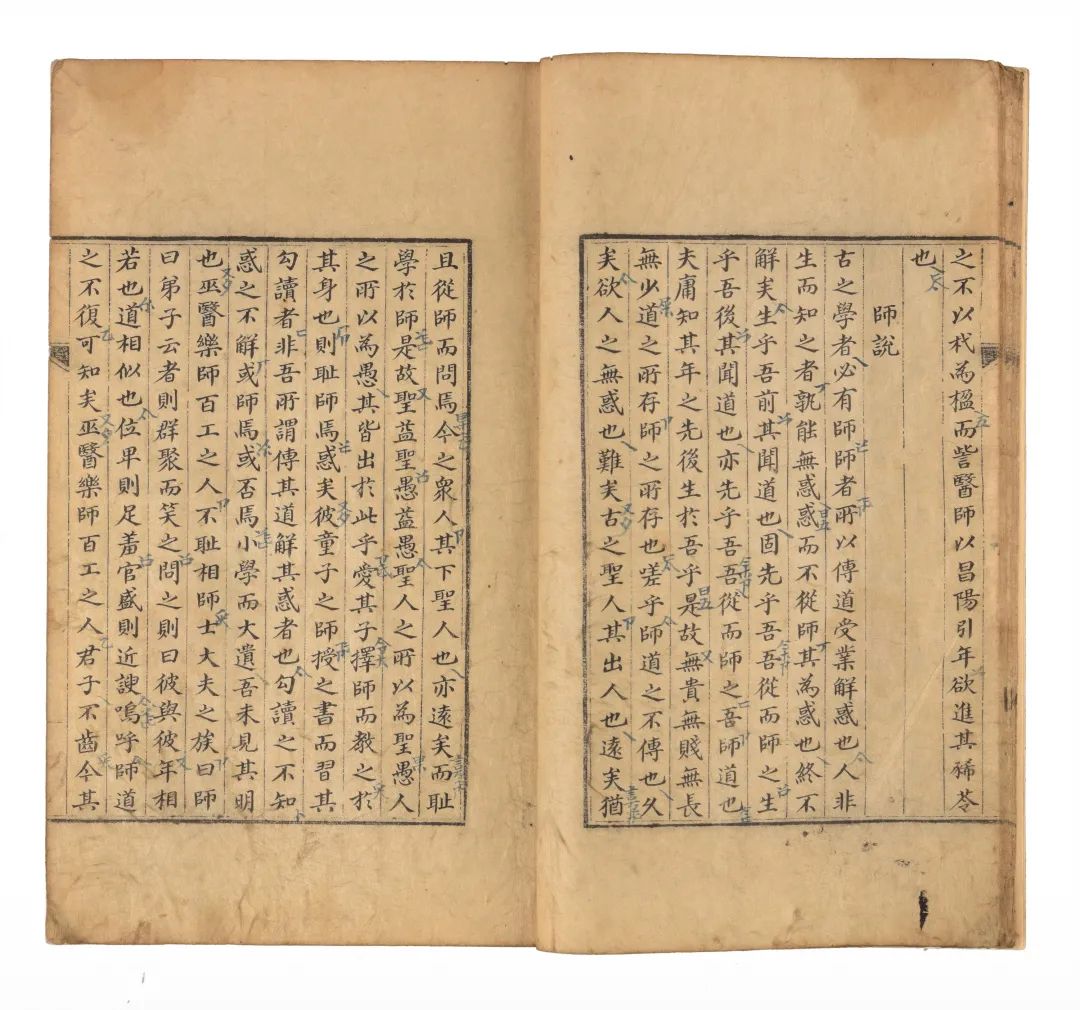 之不以杙為楹而訾醫師以昌陽引年欲進其豨苓
也
師說
古之學者必有師師者所以傳道受業解惑也人非
生而知之者孰能無惑惑而不從師其為惑也終不
解矣生乎吾前其聞道也固先乎吾吾從而師之生
乎吾後其聞道也亦先乎吾吾從而師之吾師道也
夫庸知其年之先後生於吾乎是故無貴無賤無長
無少道之所存師之所存也嗟乎師道之不傳也久
矣欲人之無惑也難矣古之聖人其出人也遠矣猶
且從師而問焉今之衆人其下聖人也亦遠矣而耻
學於師是故聖益聖愚益愚聖人之所以為聖愚人
之所以為愚其皆出於此乎愛其子擇師而教之於
其身也則耻師焉惑矣彼童子之師授之書而習其
勾讀者非吾所謂傳其道解其惑者也勾讀之不知
惑之不解或師焉或否焉小學而大遺吾未見其明
也巫醫樂師百工之人不耻相師士大夫之族曰師
曰弟子云者則群聚而笑之問之則曰彼與彼年相
若也道相似也位卑則足羞官盛則近諛嗚呼師道
之不復可知矣巫醫樂師百工之人君子不齒今其